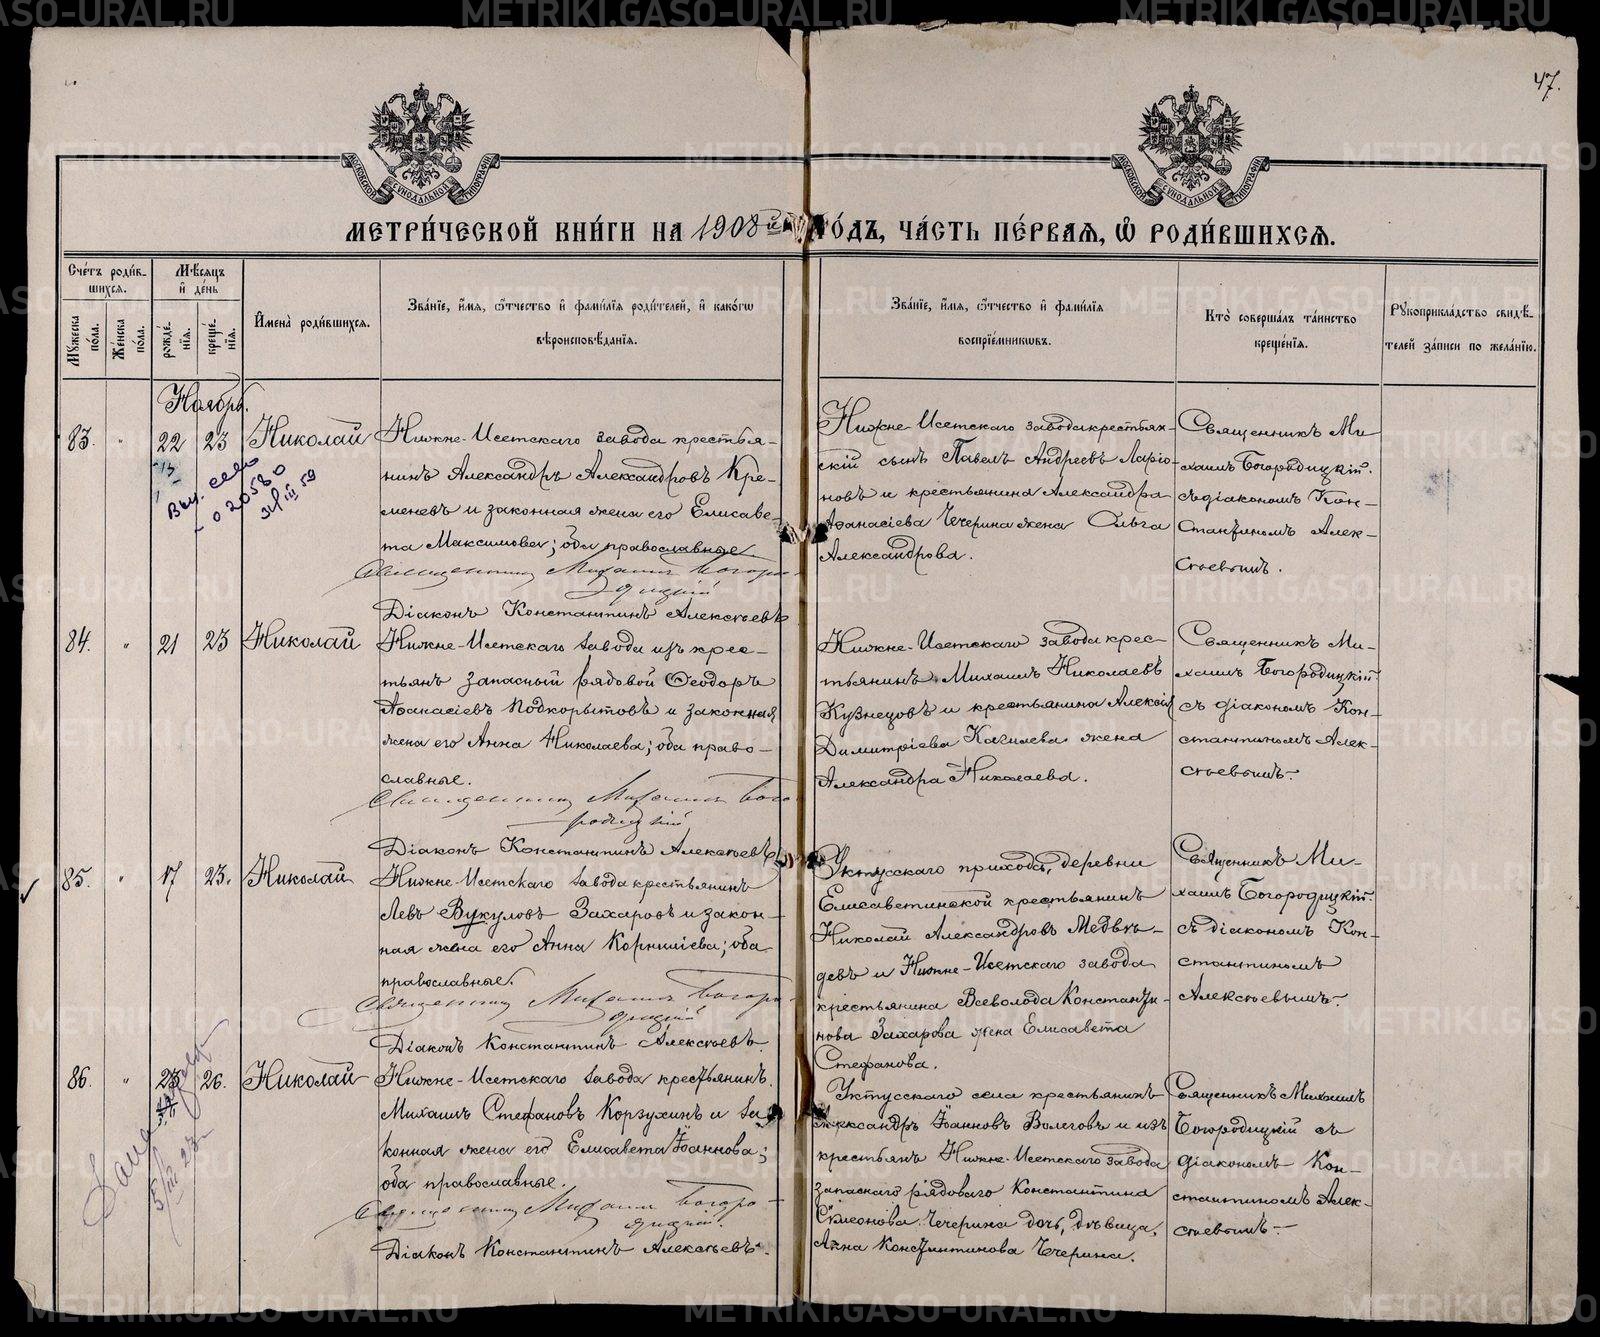 47.
МОСКОВСКОЙ СѴНОДАЛЬНОЙ ТИПОГРАФІИ
МОСКОВСКОЙ СѴНОДАЛЬНОЙ ТИПОГРАФІИ
МЕТРИ́ЧЕСКОЙ КНИ́ГИ НА 1908й ГО́ДЪ, ЧА́СТЬ ПЕ́РВАЯ, Ѡ РОДИ́ВШИХСЯ.
Сче́тъ роди́вшихся.
Му́жеска по́ла.
Же́нска по́ла.
Мѣ́сяцъ и҆ де́нь
рожде́нїя.
креще́нїя.
И҆мена̀ роди́вшихся.
Зва́нїе, и҆́мя, ѻ҆́тчество и҆ фами́лїя роди́телей, и҆ како́гѡ
вѣроисповѣ́данїя.
Зва́нїе, и҆́мя, ѻ҆́тчество и҆ фами́лїя
воспрїе́мникѡвъ.
Кто̀ соверша́лъ та́инство
креще́нїя.
Рꙋкоприкла́дство свидѣ́-
телей за́писи по жела́нїю.
Ноябрь.
83. " 22 23 Николай
Нижне-Исетскаго завода крестья-
нинъ Александръ Александровъ Кре-
меневъ и законная жена его Елисаве-
та Максимова; оба православные.
Священникъ Михаилъ Богоро-
дицкій
Діаконъ Константинъ Алексѣевъ
Нижне-Исетскаго завода крестьян-
скій сынъ Павелъ Андреевъ Ларіо-
новъ и крестьянина Александра
Аѳанасіева Чечерина жена Ольга
Александрова.
Священникъ Ми-
хаилъ Богородицкій
съ діакономъ Кон-
стантиномъ Алек-
сѣевымъ.
84. " 21 23 Николай
Нижне-Исетскаго завода изъ крес-
тьянъ запасный рядовой Ѳеодоръ
Аѳанасіевъ Подкорытовъ и законная
жена его Анна Николаева; оба право-
славные.
Священникъ Михаилъ Бого-
родицкій
Діаконъ Константинъ Алексѣевъ
Нижне-Исетскаго завода крес-
тьянинъ Михаилъ Николаевъ
Кузнецовъ и крестьянина Алексія
Димитріева жена
Александра Николаева.
Священникъ Ми-
хаилъ Богородицкій
съ діакономъ Кон-
стантиномъ Алек-
сѣевымъ.
85. " 17 23. Николай
Нижне-Исетскаго завода крестьянинъ
Левъ Вукуловъ Захаровъ и закон-
ная жена его Анна Корниліева; оба
православные.
Священникъ Михаилъ Богоро-
дицкій
Діаконъ Константинъ Алексѣевъ.
Уктусскаго прихода, деревни
Елисаветинской крестьянинъ
Николай Александровъ Медвѣ-
девъ и Нижне-Исетскаго завода
крестьянина Всеволода Константи-
нова Захарова жена Елисавета
Стефанова.
Священникъ Ми-
хаилъ Богородицкій
съ діакономъ Кон-
стантиномъ
Алексѣевымъ.
86. " 25 26. Николай
Нижне-Исетскаго завода крестьянинъ
Михаилъ Стефановъ Корзухинъ и за-
конная жена его Елисавета Іоаннова;
оба православные.
Священникъ Михаилъ Богоро-
дицкій.
Діаконъ Константинъ Алексѣевъ.
Уктусскаго села крестьянинъ
Александръ Іоанновъ Волеговъ и изъ
крестьянъ Нижне-Исетскаго завода
запаснаго рядоваго Константина
Сѵмеонова Чечерина дочь, дѣвица,
Анна Константинова Чечерина.
Священникъ Михаилъ
Богородицкій съ
діакономъ Кон-
стантиномъ Алек-
сѣевымъ.
METRIKI.GASO-URAL.RU